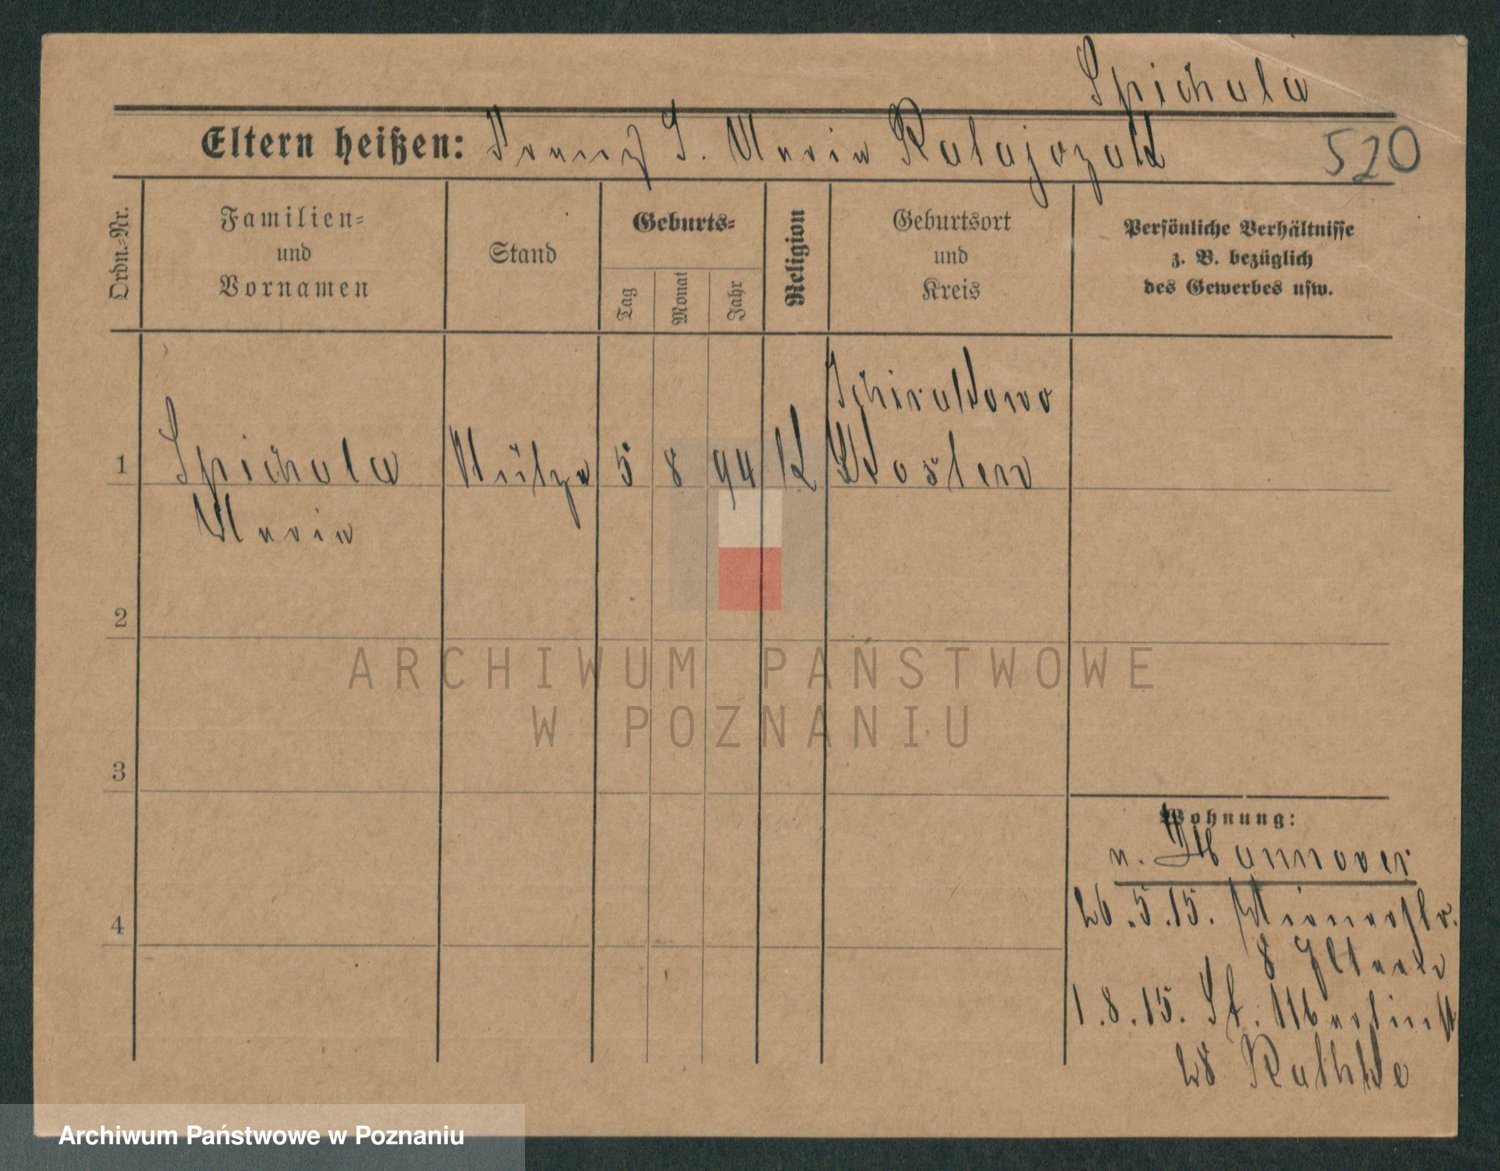 Spichala
Eltern heißen: Franz S. Maria Ratajczak
520
Ordn.-Nr.
Familien-
und
Vornamen
Stand
Geburts-
Tag
Monat
Jahr
Religion
Geburtsort
und
Kreis
Persönliche Verhältnisse
z. B. bezüglich
des Gewerbes usw.
1
Spichala
Maria
Stütze
5
8
94
K
Kosten
2
3
4
Wohnung:
v. Hannover
26.5.15. Wienerstr.
8
1.8.15.
28 Rathke
ARCHIWUM PAŃSTWOWE
W POZNANIU
Archiwum Państwowe w Poznaniu